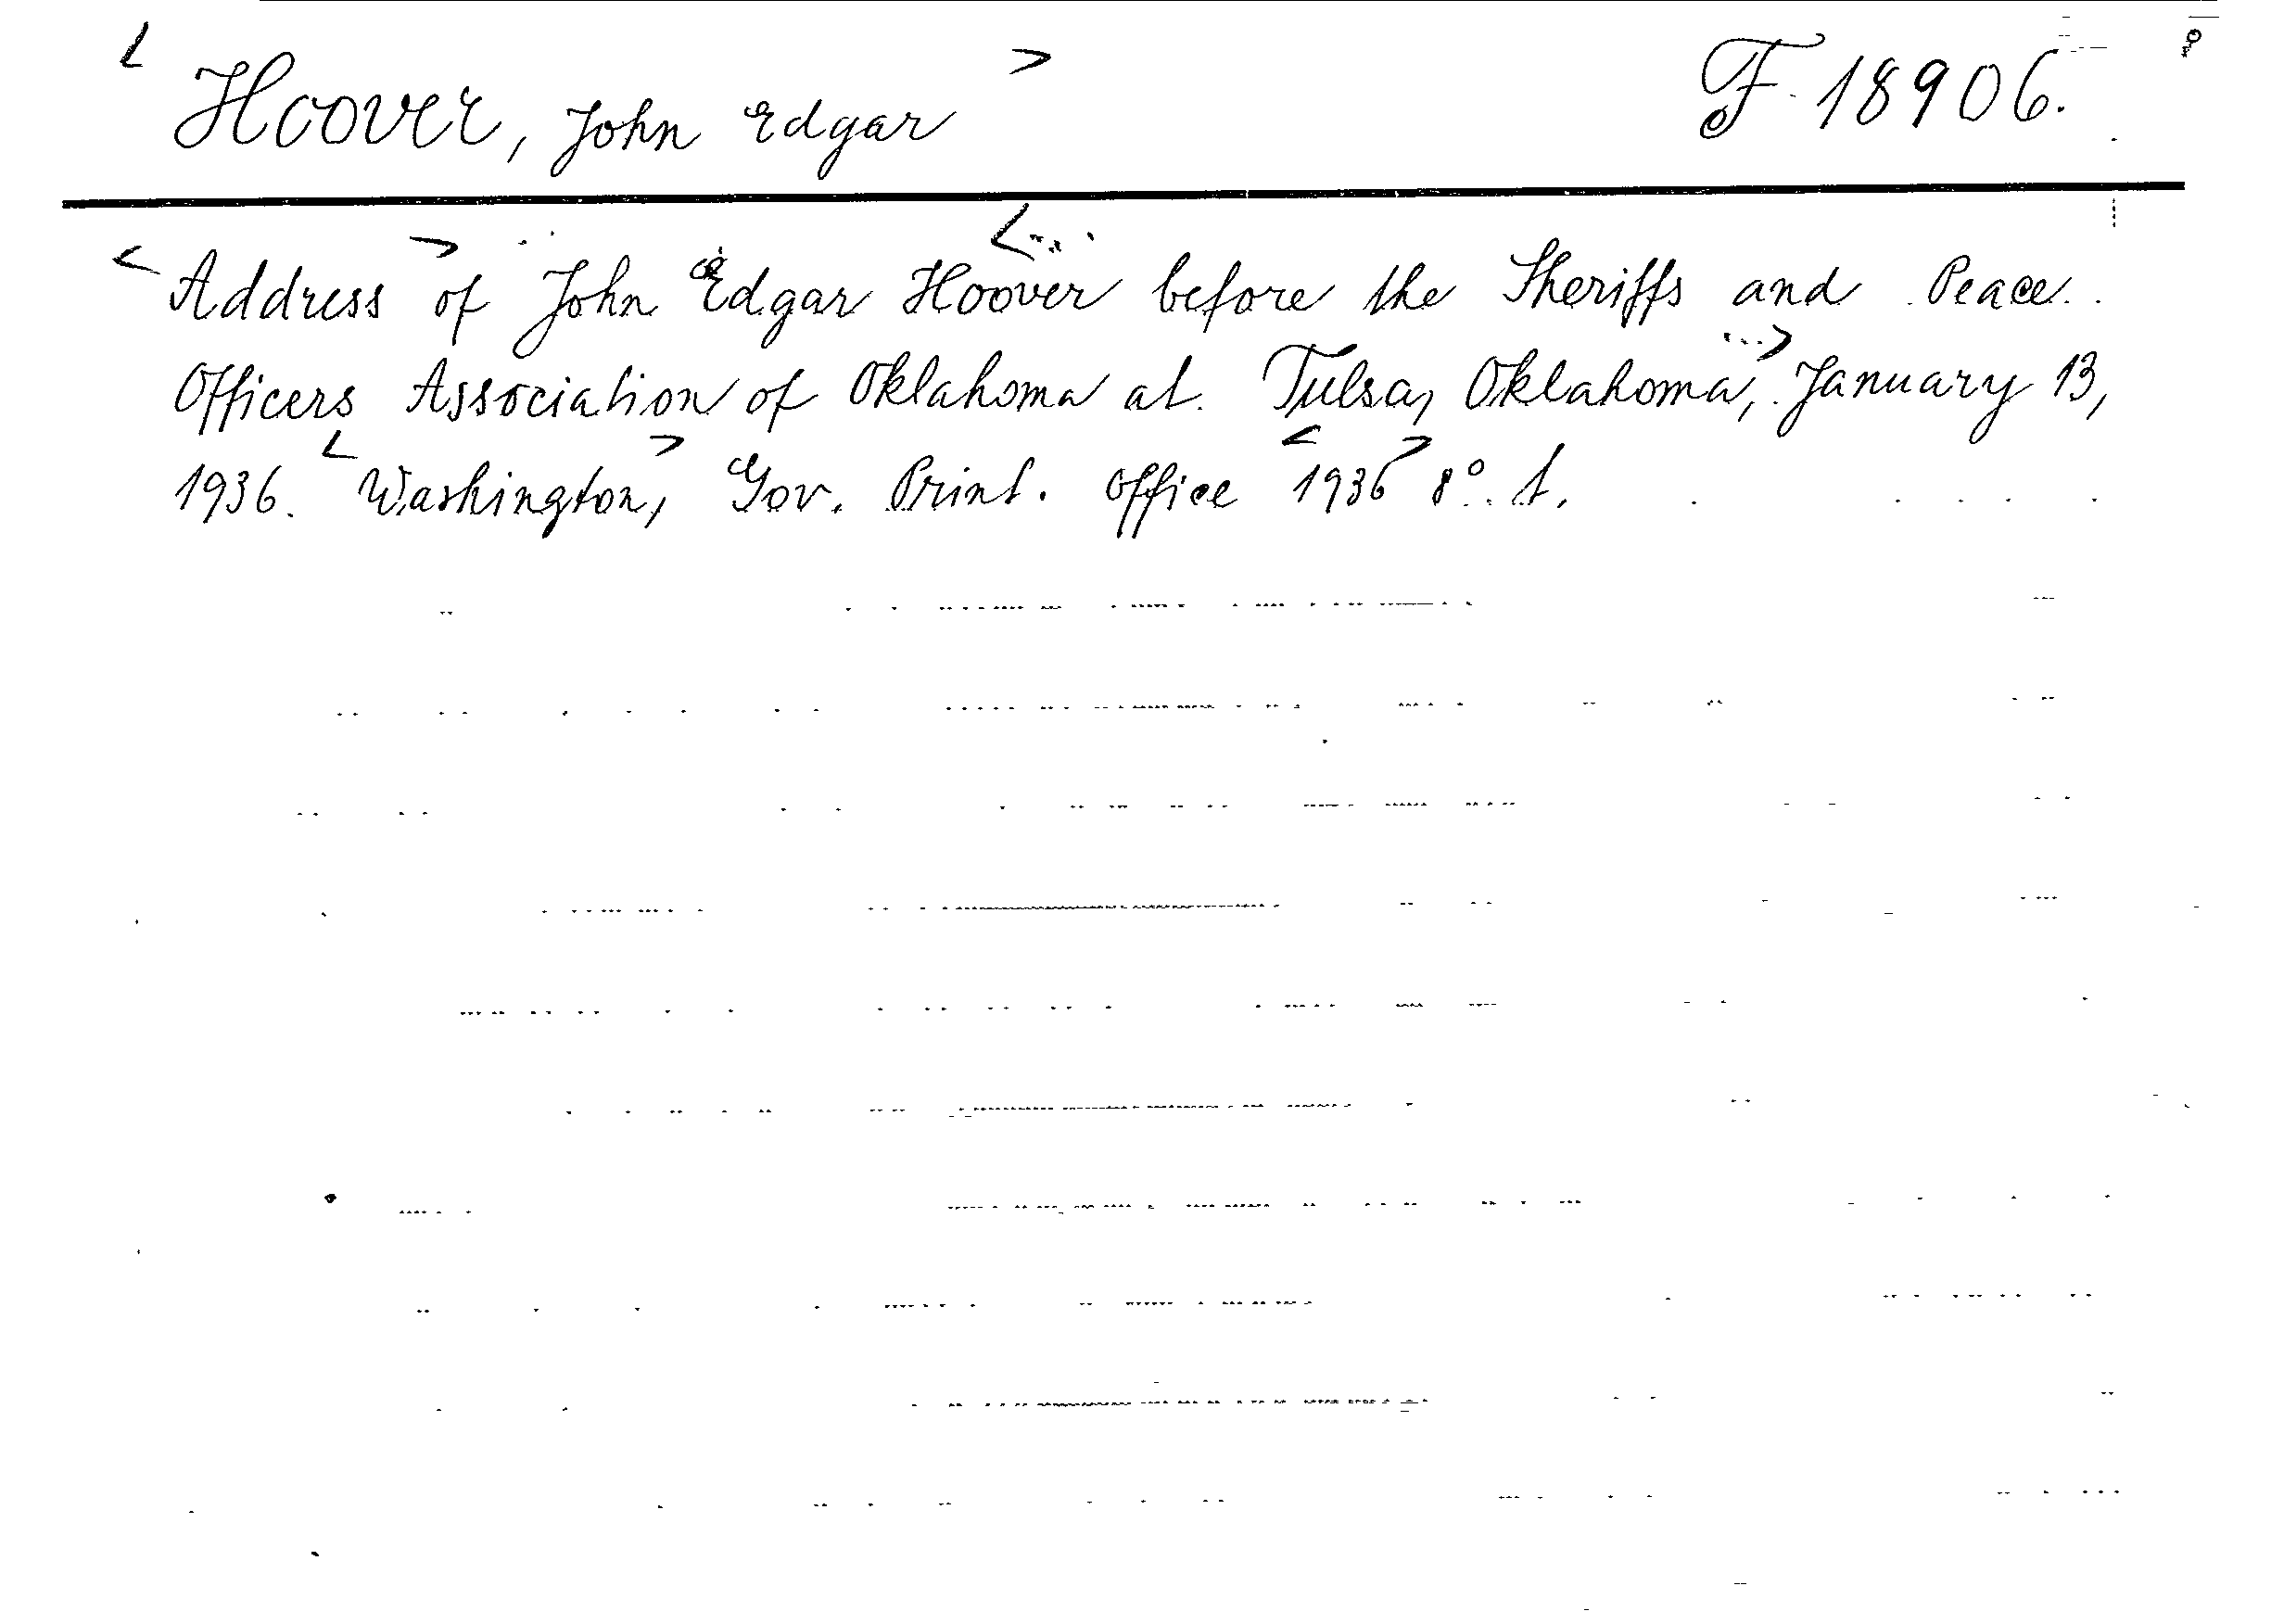 < Hoover, John Edgar > F 18906.
< Address > of John Edgar Hoover <... before the Sheriffs and Peace
Officers Association of Oklahoma at Tulsa, Oklahoma, ...> January 13,
1936. < Washington, > Gov. Print. Office < 1936 > 8°. t.